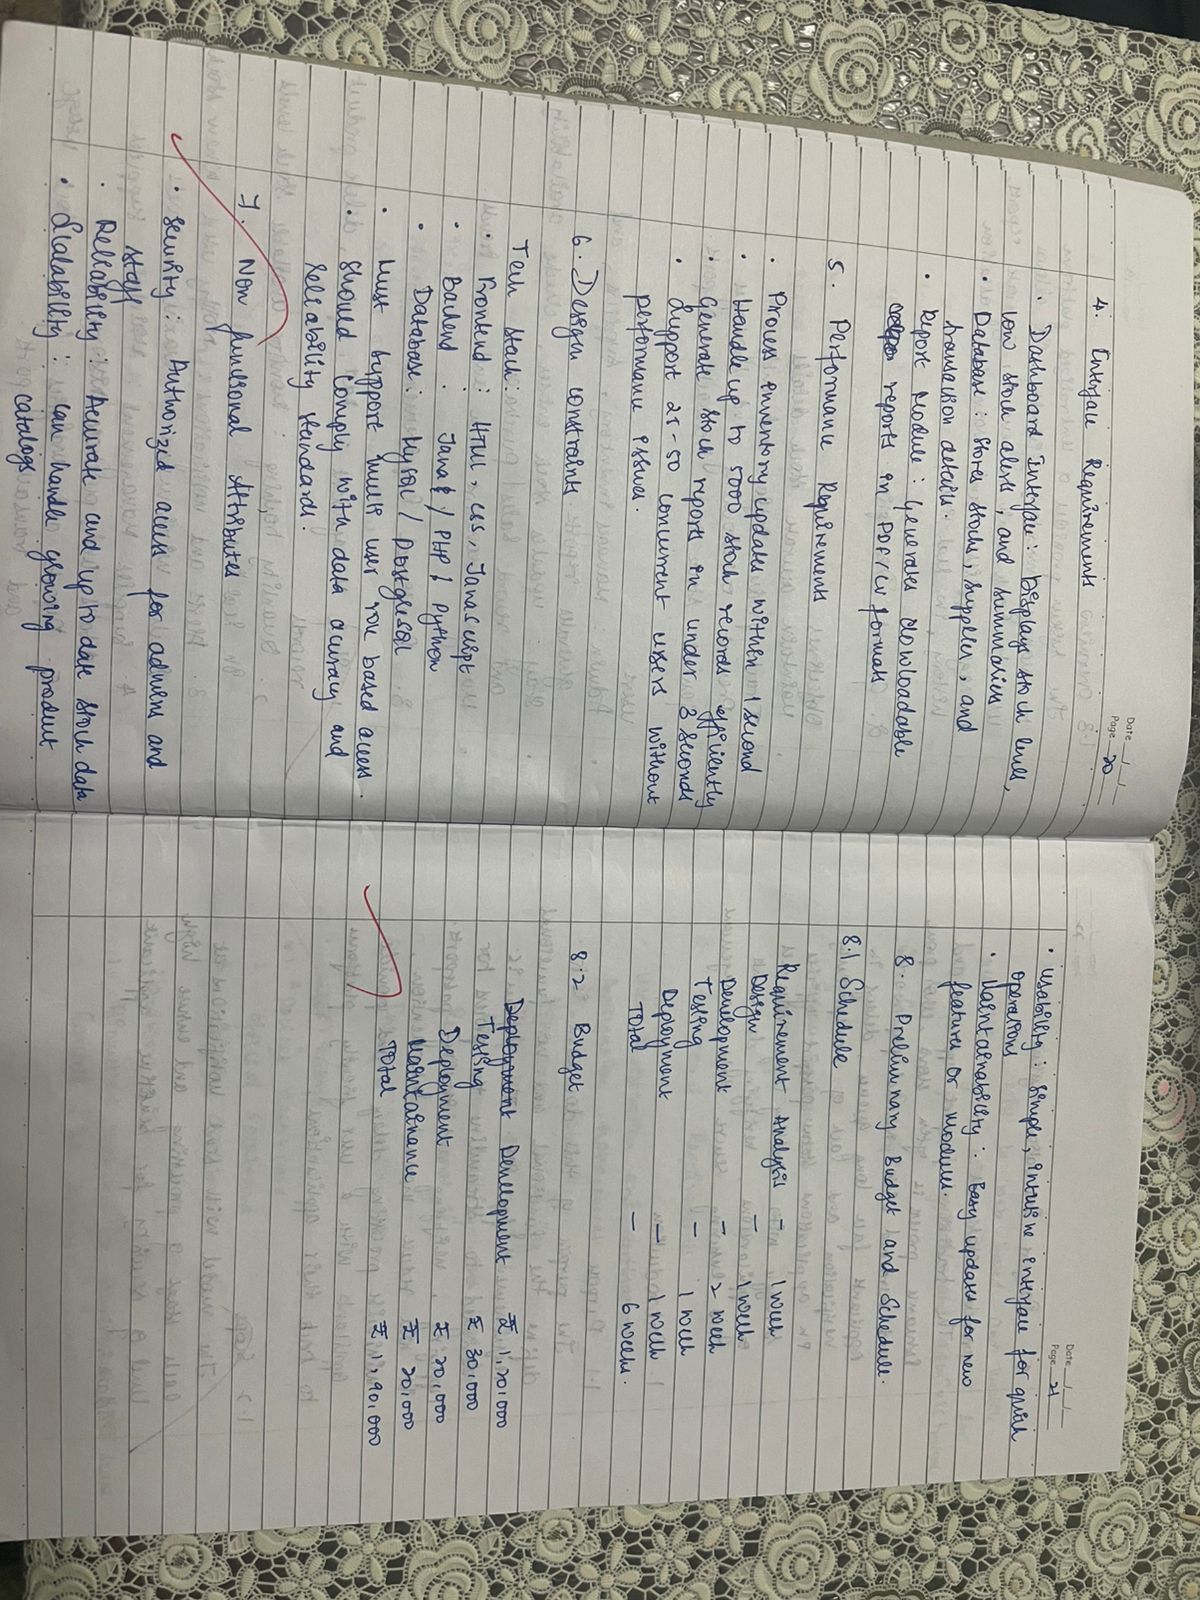 Date __/__/__
Page 20
4. Interface Requirements
• Dashboard Interface: Displays stock levels,
low stock alerts, and summaries
• Database: Stores stocks, suppliers, and
transaction details.
• Report Module: Generates downloadable
reports in PDF/CSV formats
5. Performance Requirements
• Process inventory updates within 1 second
• Handle up to 5000 stock records efficiently
• Generate stock reports in under 3 seconds
• Support 25-50 concurrent users without
performance issues.
6. Design constraints
Tech stack:
• Frontend : HTML, CSS, Javascript
• Backend : Java / PHP / Python
• Database: MySQL / PostgreSQL
• Must support multi user role based access.
• Should comply with data accuracy and
reliability standards.
7. Non functional Attributes
• Security: Authorized access for admins and
staff
• Reliability: Accurate and up to date stock data
• Scalability: can handle growing product
catalogs
Date __/__/__
Page 21
• Usability: Simple, intuitive interface for quick
operations
• Maintainability: Easy updates for new
features or modules.
8. Preliminary Budget and Schedule.
8.1 Schedule
Requirement Analysis - 1 week
Design - 1 week
Development - 2 week
Testing - 1 week
Deployment - 1 week
Total - 6 weeks.
8.2 Budget
Deployment Development ₹ 1,20,000
Testing ₹ 30,000
Deployment ₹ 20,000
Maintainance ₹ 20,000
Total ₹ 1,90,000